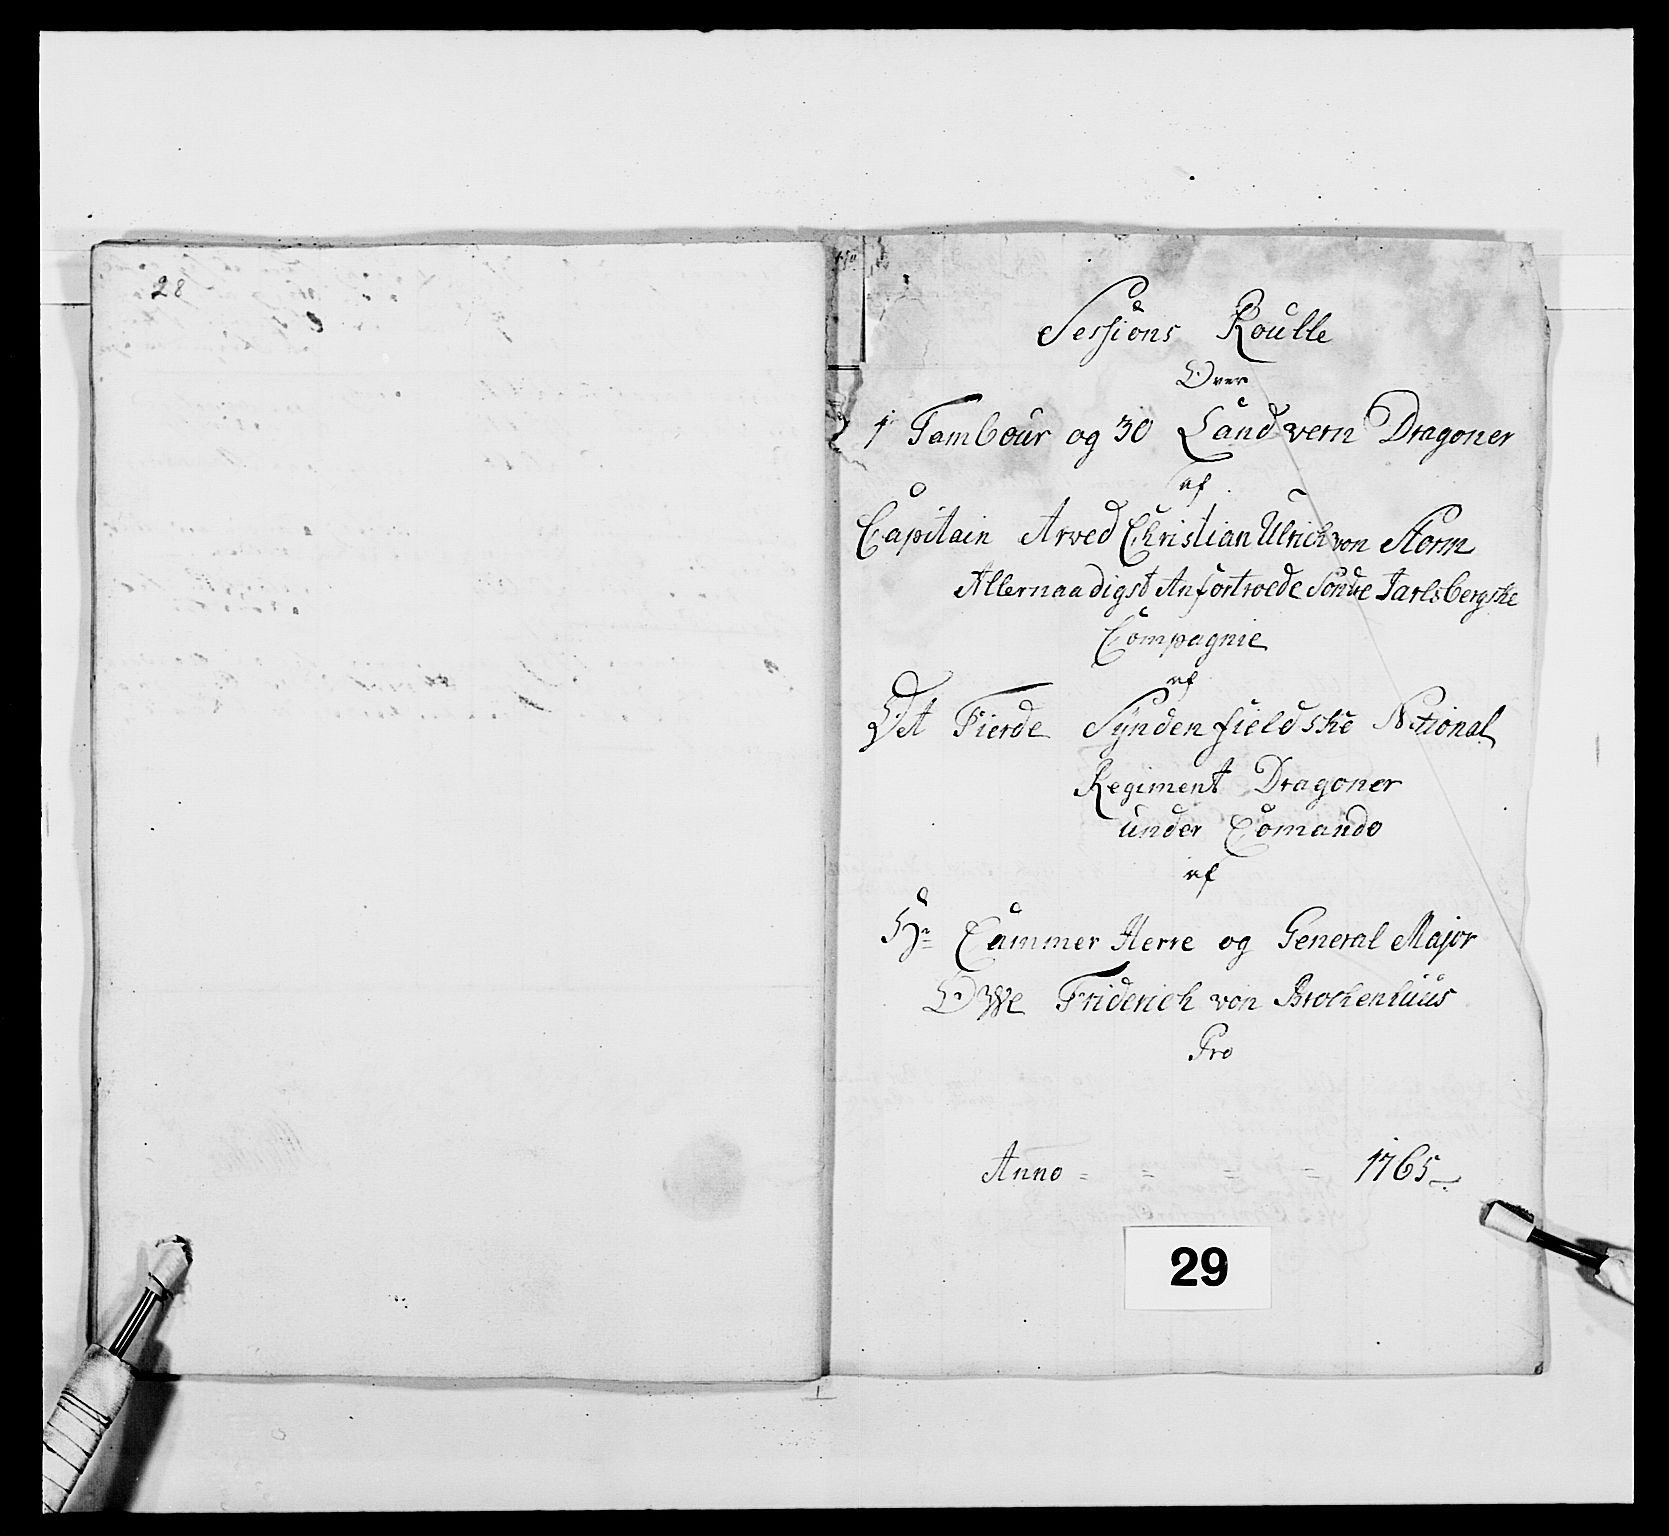 28
Sessions Roulle
Over
1 Tambour og 30 Landvern Dragoner
af
Capitain Arved Christian Ulrich von Storm
Allernaadigst Anfortroede Söndre Jarlsbergske
Compagnie
af
Det Fierde Syndenfieldske National
Regiment Dragoner
under Comando
af
Hr Cammer Herre og General Major
Owe Friderich von Brochenhuus
Pro
Anno = = = = 1765
29